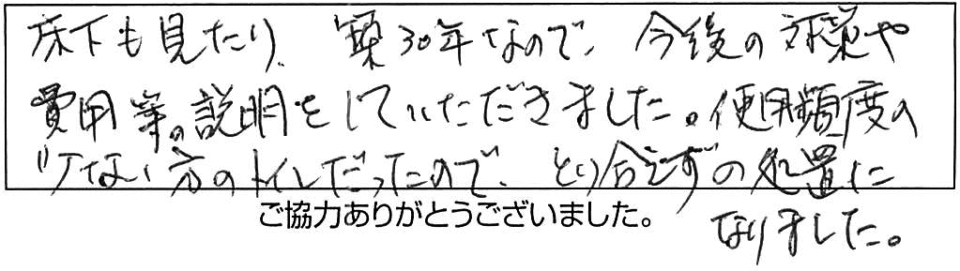 床下も見たり、築30年なので、今後の対策や
費用等の説明をしていただきました。使用頻度の
少ない方のトイレだったので、とり合えずの処置に
なりました。
ご協力ありがとうございました。